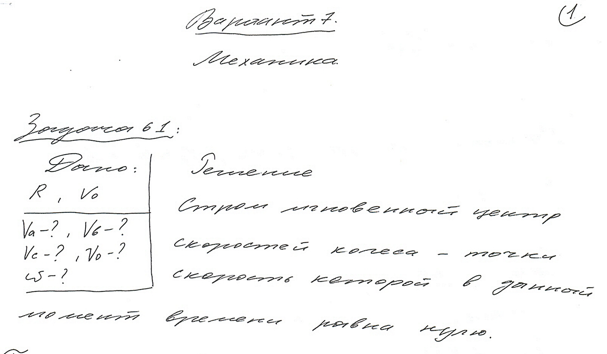 1
Вариант 7.
Механика.
Задача 61:
Дано:
R, V₀
Va-?, Vв-?
Vc-?, V₀-?
ω-?
Решение
Строим мгновенный центр
скоростей колеса – точки
скорость которой в данный
момент времени равна нулю.